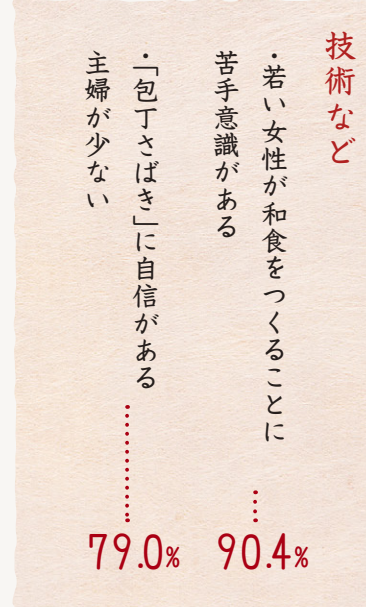 技術など
・若い女性が和食をつくることに
苦手意識がある
90.4%
・「包丁さばき」に自信がある
主婦が少ない
79.0%